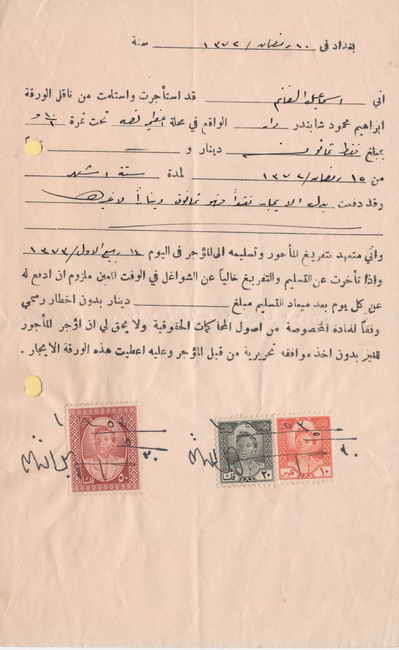 بغداد في ١٠ رمضان / ١٣٧٢ سنة
اني اسماعيل الغانم قد استأجرت واستلمت من ناقل الورقة
ابراهيم محمود شابندر دار الواقع في محلة تحت نمرة
بمبلغ فقط ثمانون دينار و
من ١٥ رمضان / ١٣٧٢ لمدة ستة اشهر
وقد دفعت بدل الايجار نقداً وهو ثمانون ديناراً لا غيرها
واني متعهد بتفريغ المأجور وتسليمه الى المؤجر في اليوم ١٤ ربيع الاول / ١٣٧٣
واذا تأخرت عن التسليم والتفريغ خالياً عن الشواغل في الوقت المعين ملزوم ان ادفع له
عن كل يوم بعد ميعاد التسليم مبلغ دينار بدون اخطار رسمي
وفقاً للمادة المخصوصة من اصول المحاكمات الحقوقية ولا يحق لي ان اؤجر المأجور
للغير بدون اخذ موافقه تحريرية من قبل المؤجر وعليه اعطيت هذه الورقة الايجار .
٥٠ فلس
٢٠ فلس
١٠ فلوس